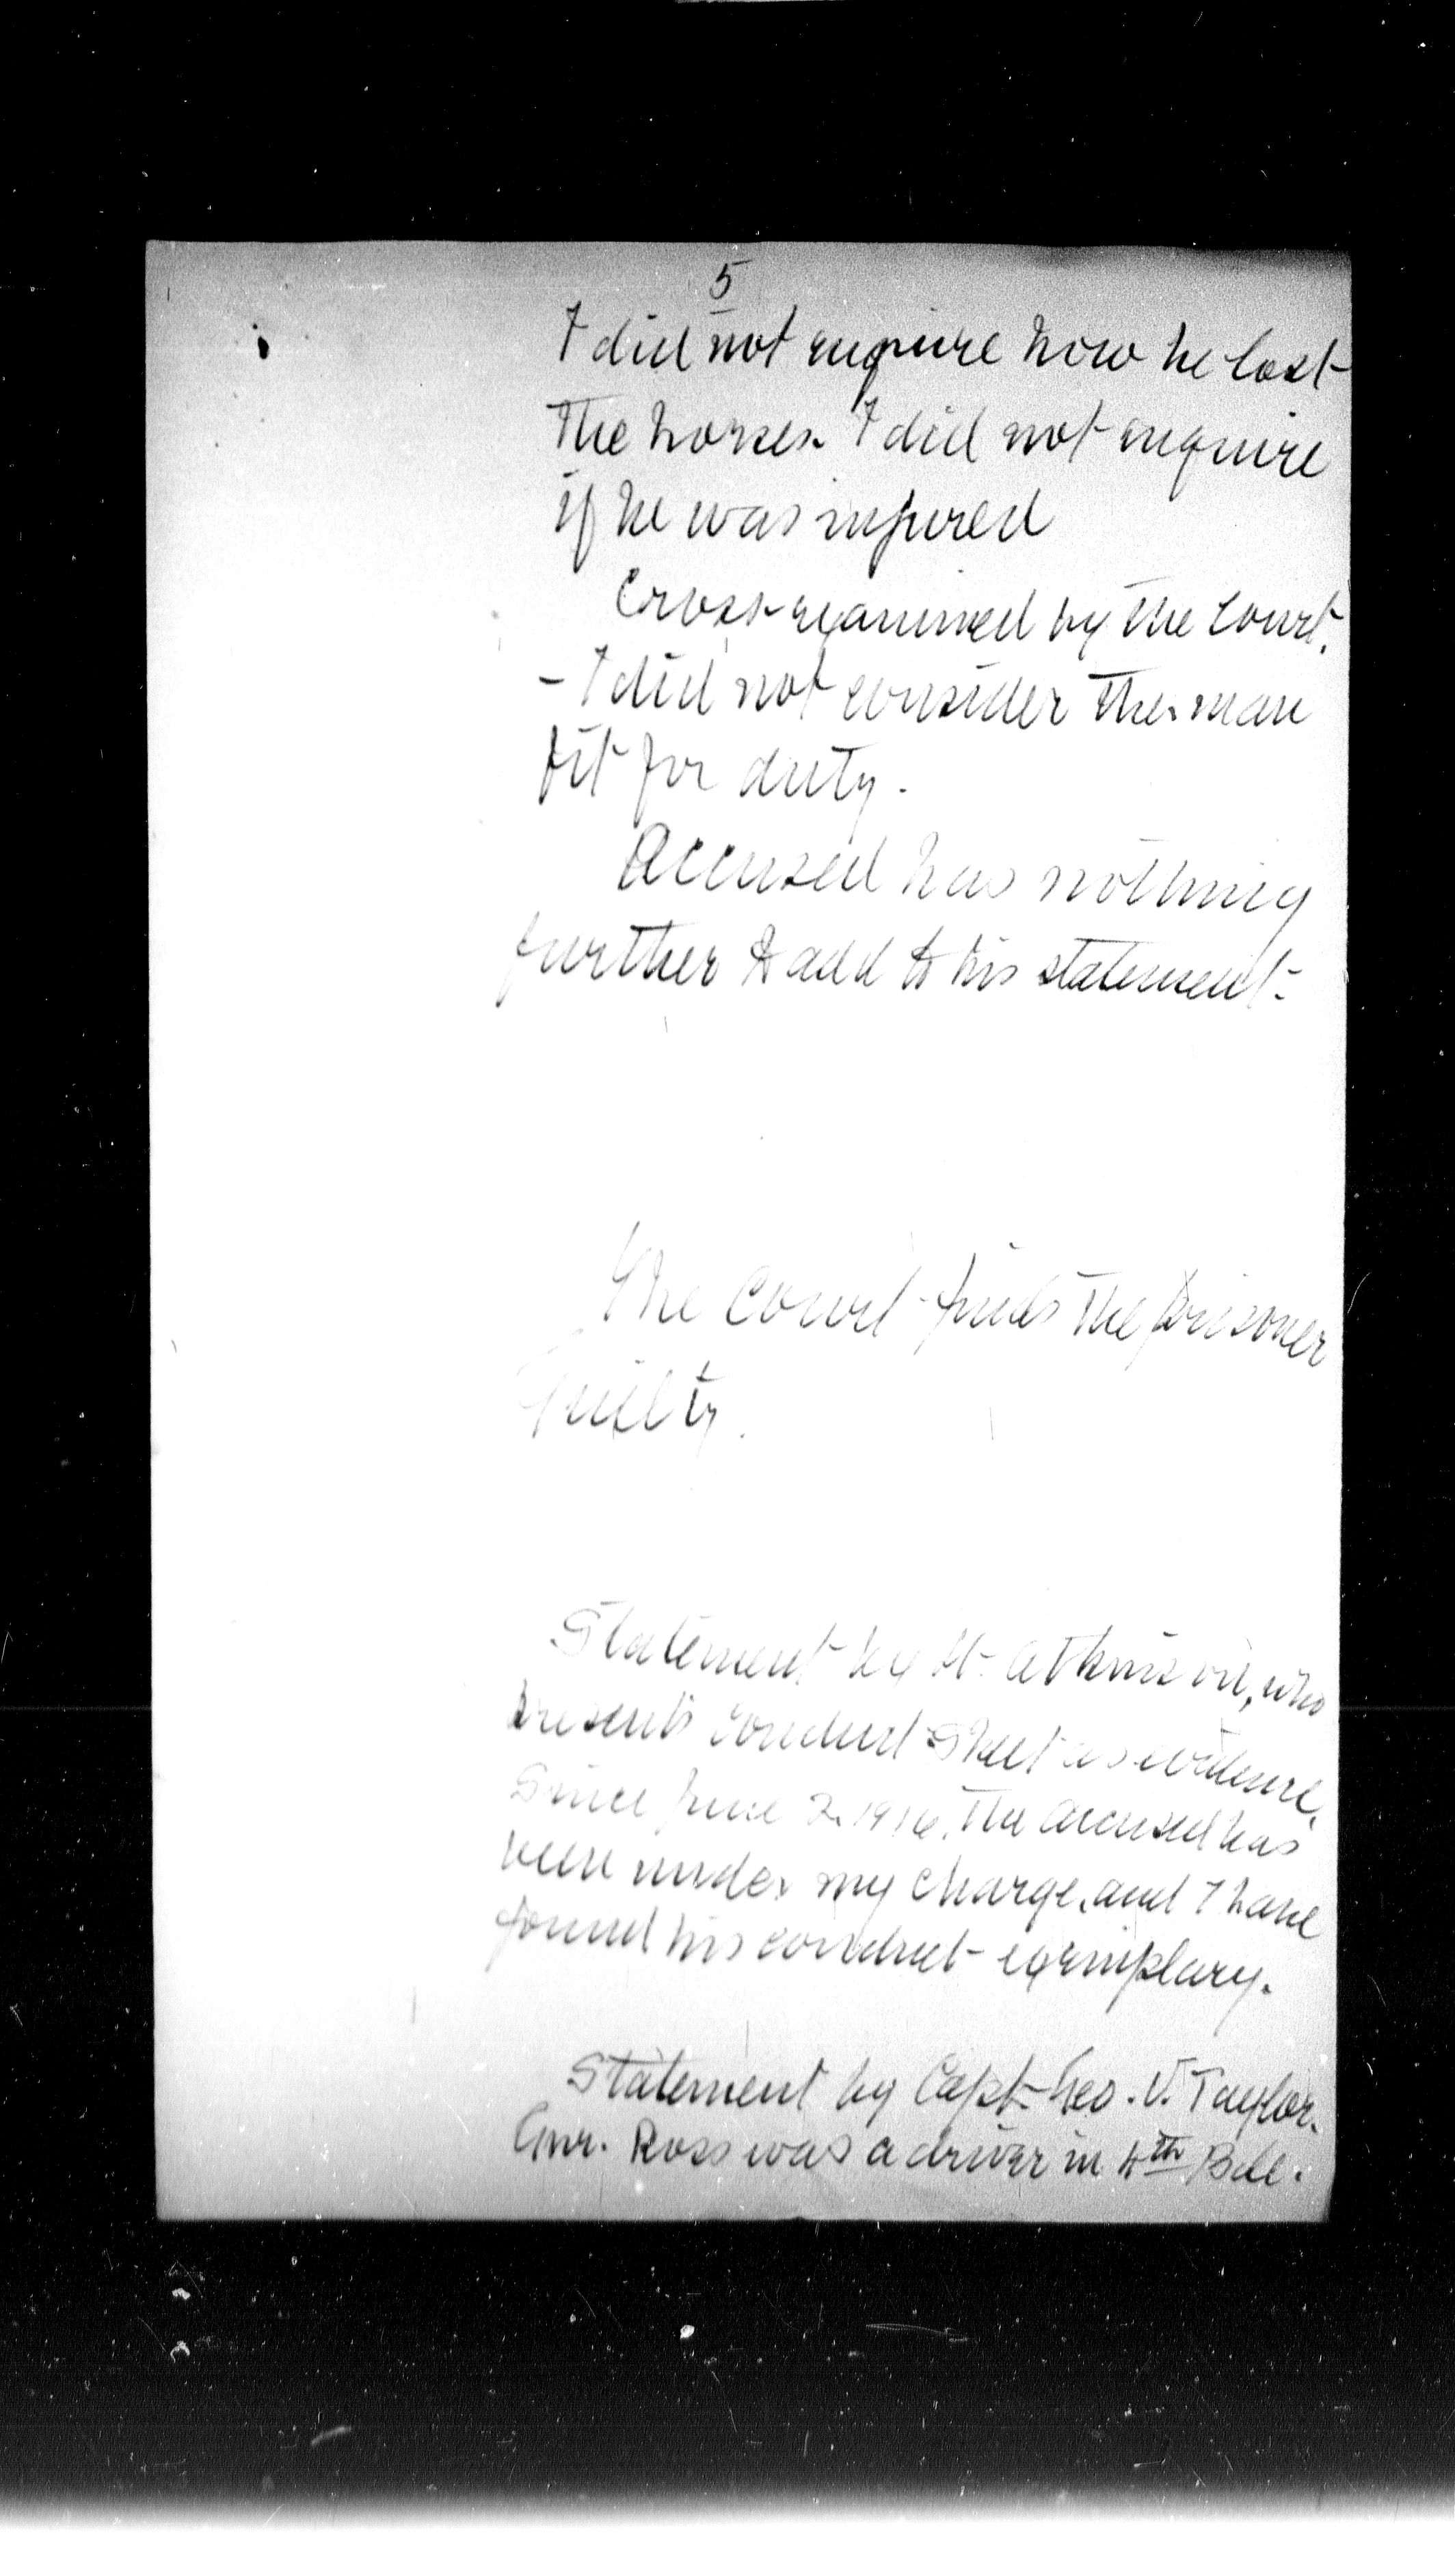 5
I did not enquire how he lost
the horses. I did not enquire
if he was injured
Cross-examined by the Court.
- I did not consider the man
fit for duty.
Accused has nothing
further to add to his statement.
The Court finds the prisoner
Guilty.
Statement by Lt. Atkinson, who
presents Conduct Sheet as evidence.
Since June 2. 1916, the accused has
been under my charge, and I have
found his conduct exemplary.
Statement by Capt. Geo. V. Taylor.
Gnr. Ross was a driver in 4th